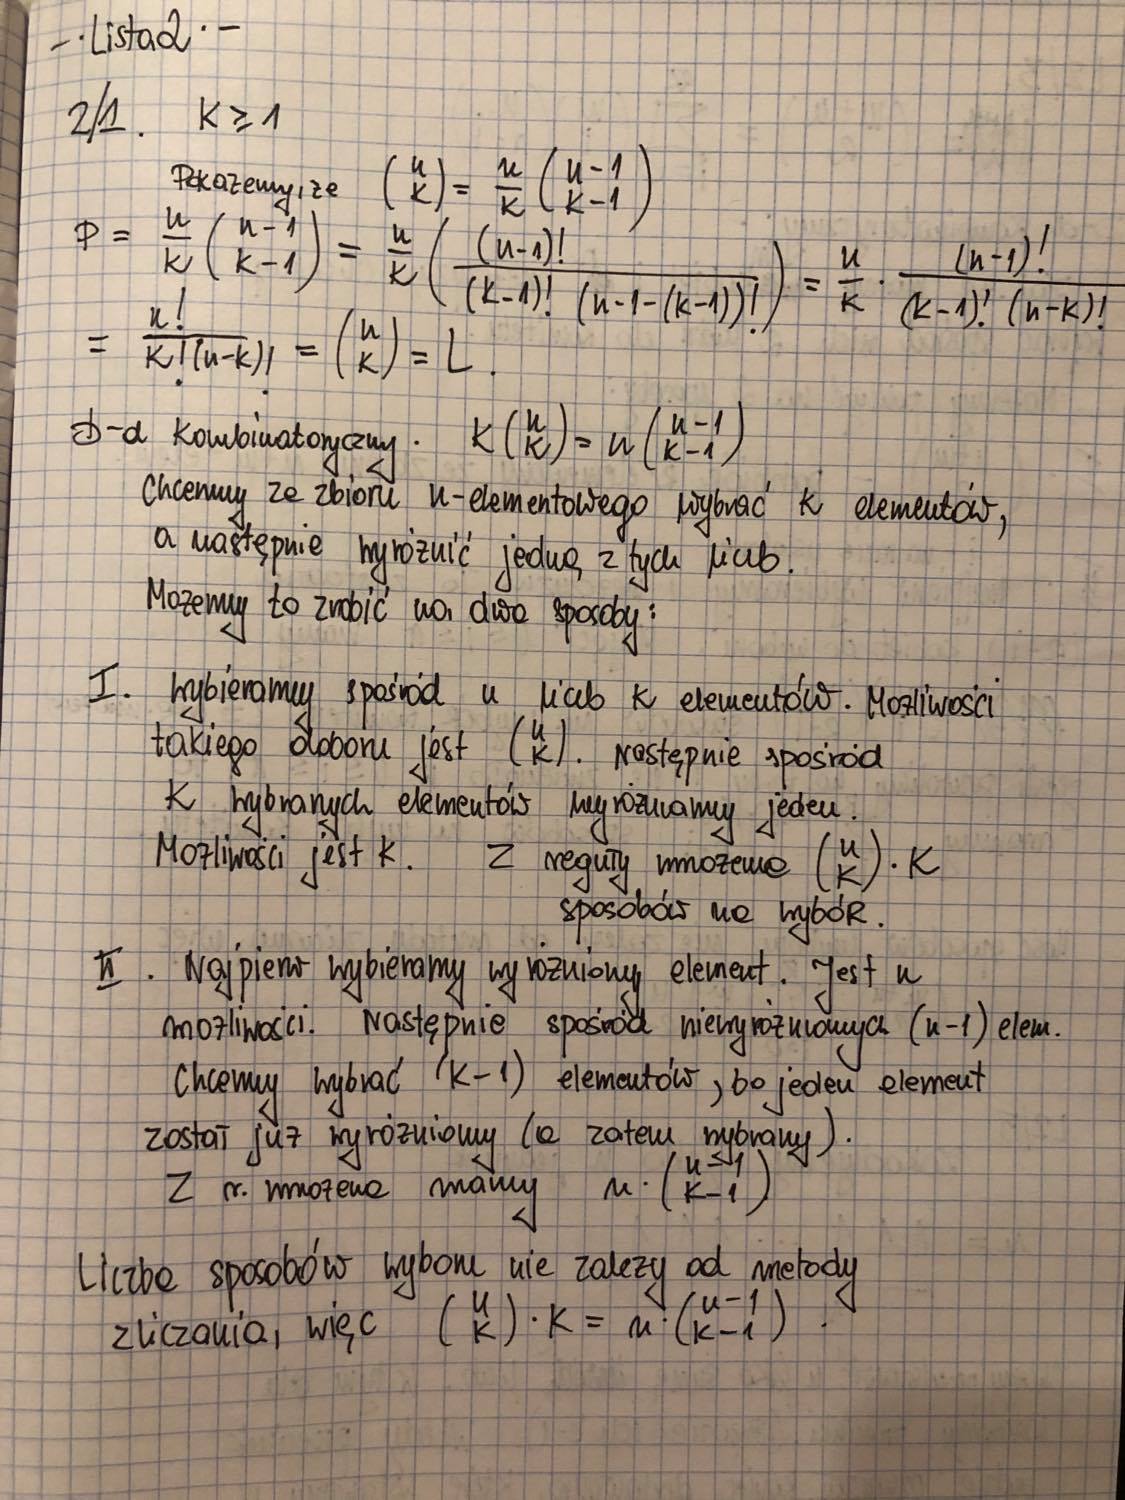 -. Lista2 . -
2/1. K ≥ 1
Pokażemy, że (n K) = n/K (n-1 K-1)
P = n/K (n-1 K-1) = n/K ( (n-1)! / (K-1)! (n-1-(K-1))! ) = n/K · (n-1)! / (K-1)! (n-K)!
= n! / K!(n-K)! = (n K) = L.
D-d kombinatoryczny. K (n K) = n (n-1 K-1)
Chcemy ze zbioru n-elementowego wybrać K elementów,
a następnie wyróżnić jedną z tych liczb.
Możemy to zrobić na dwa sposoby:
I. Wybieramy spośród n liczb K elementów. Możliwości
takiego doboru jest (n K). Następnie spośród
K wybranych elementów wyróżniamy jeden.
Możliwości jest K. Z reguły mnożenia (n K) · K
sposobów na wybór.
II. Najpierw wybieramy wyróżniony element. Jest n
możliwości. Następnie spośród niewyróżnionych (n-1) elem.
Chcemy wybrać (K-1) elementów, bo jeden element
został już wyróżniony (a zatem wybrany).
Z r. mnożenia mamy n · (n-1 K-1)
Liczba sposobów wyboru nie zależy od metody
zliczania, więc (n K) · K = n · (n-1 K-1) .